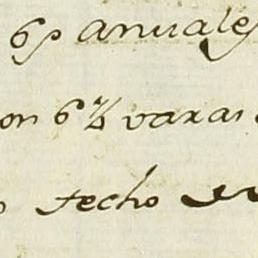 6p anuales
on 6½ varas
techo